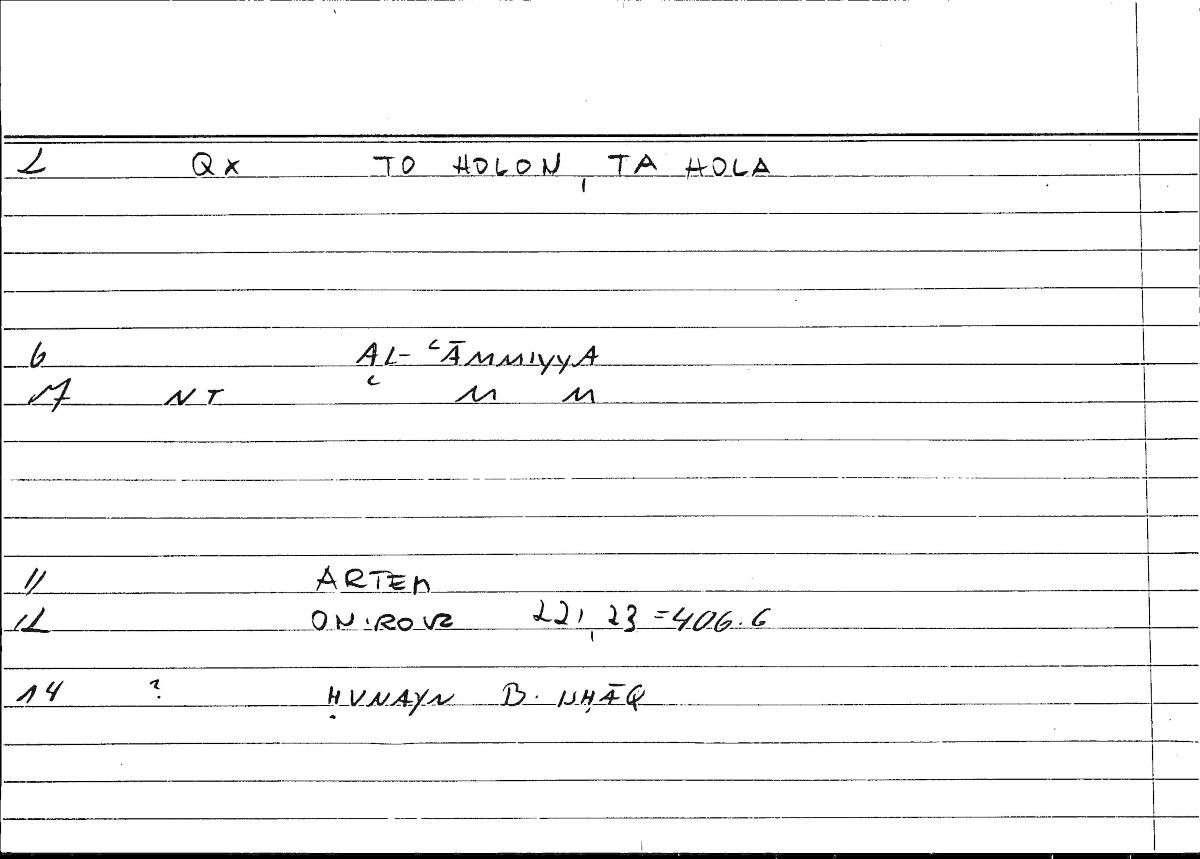 2 QX TO HOLON, TA HOLA
6 AL-ʿĀMMIYYA
17 NT ʿ M M
11 ARTEM
12 ONIROKR 221, 23 = 406.6
14 ? ḤUNAYN B. ISḤĀQ